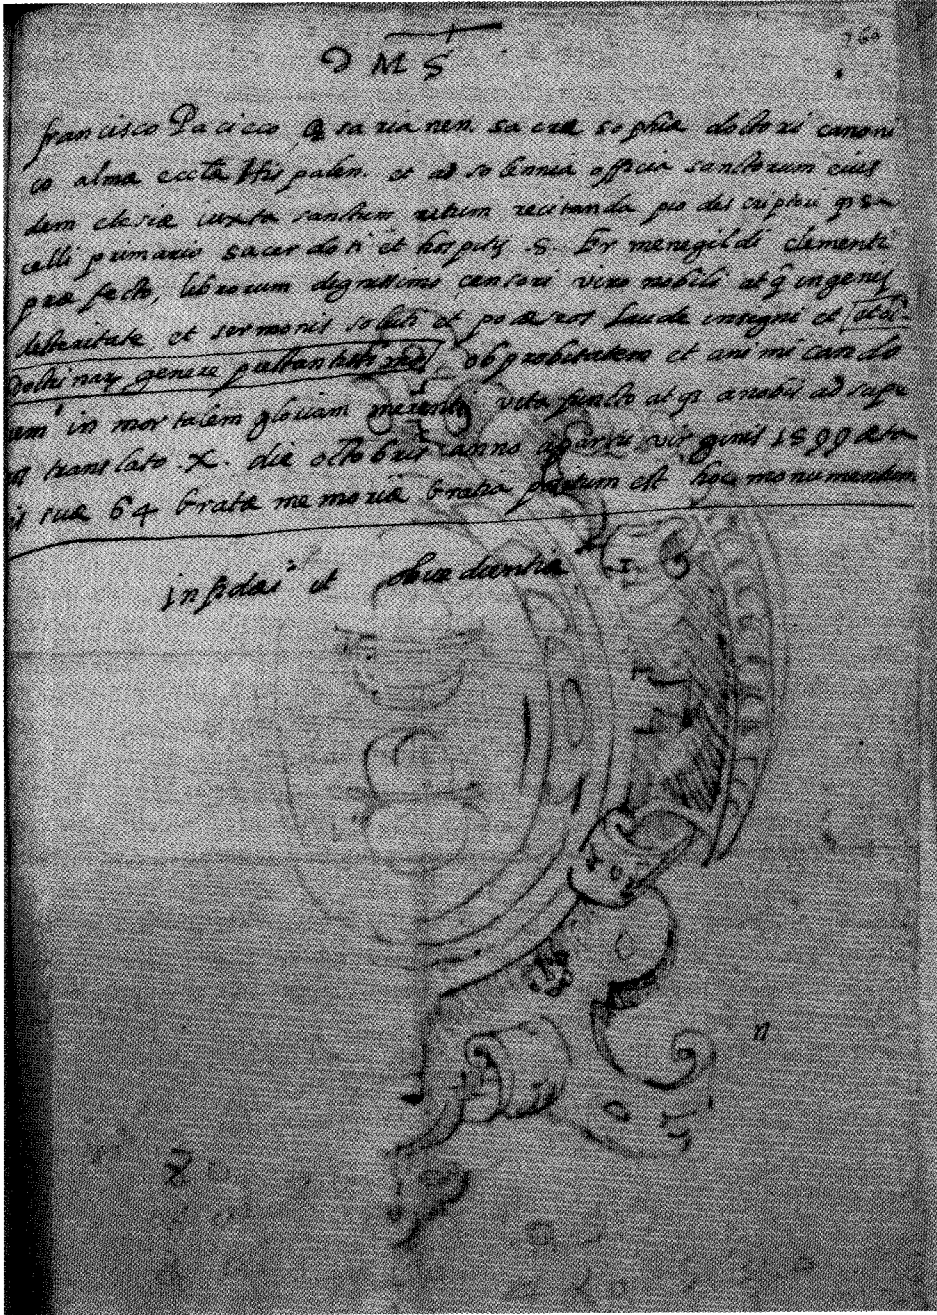 D M S
francisco Pacieco Asarianen. sacræ sophiæ doctori canoni
co almæ eccłæ Hispalen. et ad solennia officia sanctorum eius
dem eclesiæ iuxta sanctum ritum recitanda
celli primario sacerdoti et hospitij .S. Ermenegildi clementi
præfecto, librorum dignissimo censori viro nobili atq ingenij
et sermonis et laude insigni et
genere ob probitatem et animi cando
em in mortalem gloriam merenti vita functo atq a nobis ad supe
translato .X. die octobris anno a partu virginis 1599 æta
is suæ 64 Gratæ memoriæ Gratia positum est hoc monumentum
in fidei et